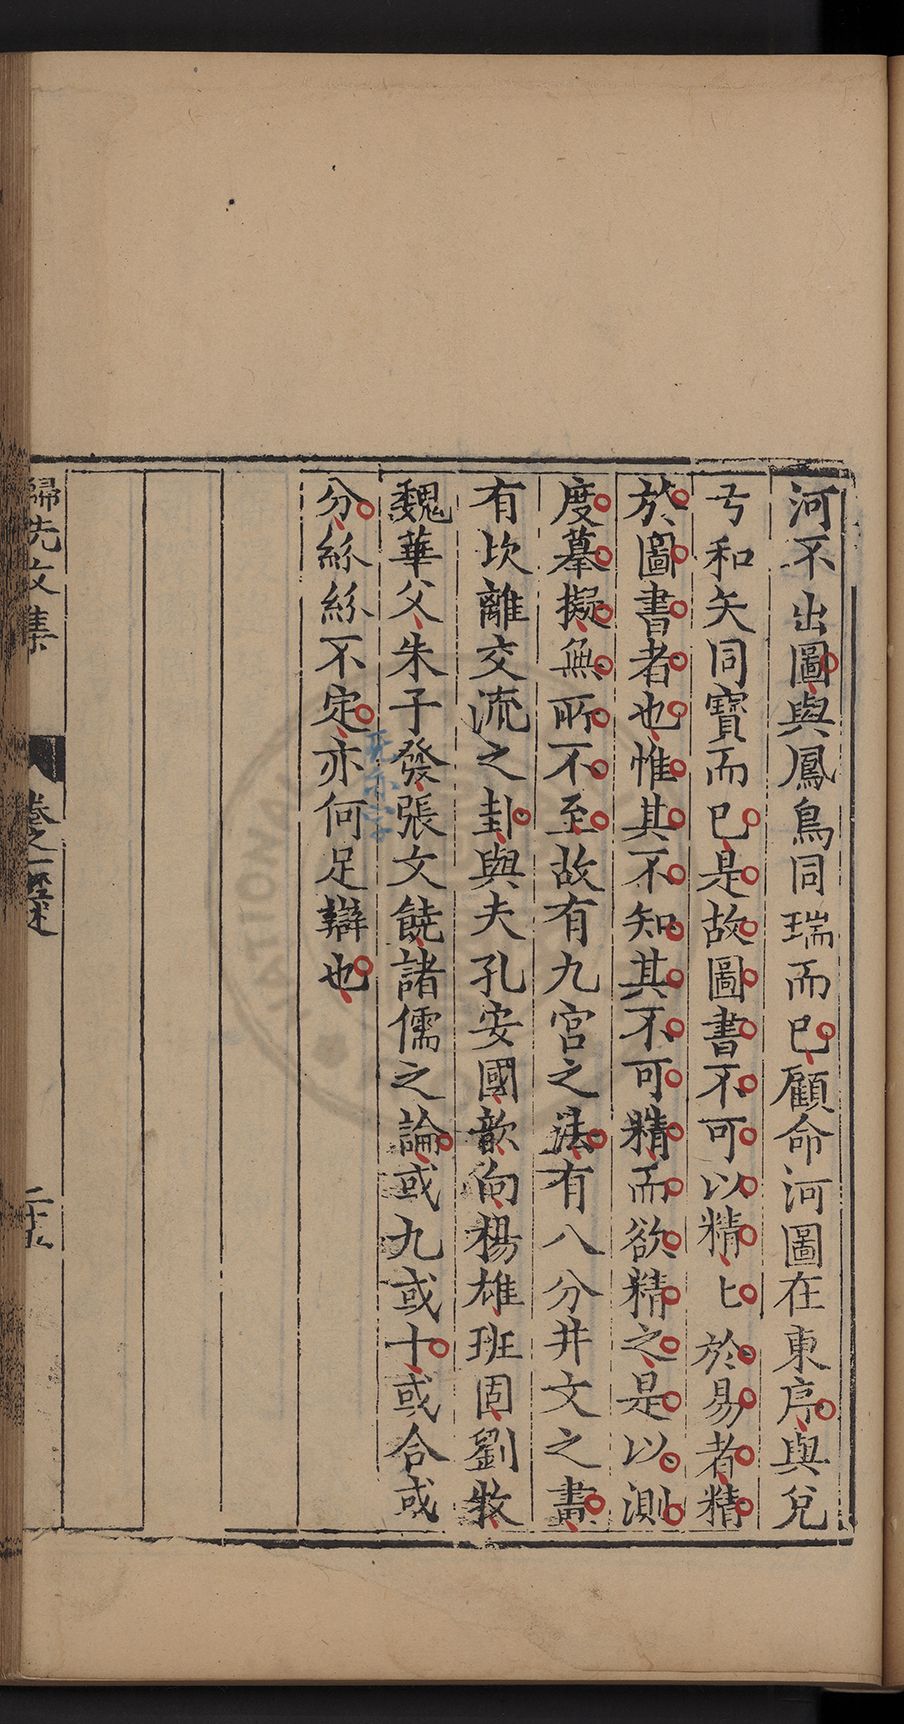 河不出圖與鳳鳥同瑞而已顧命河圖在東序與兌
弓和矢同寶而已是故圖書不可以精匕於易者精
於圖書者也惟其不知其不可精而欲精之是以測
度摹擬無所不至故有九宮之法有八分井文之畫
有坎離交流之卦與夫孔安國歆向楊雄班固劉牧
魏華父朱子發張文饒諸儒之論或九或十或合或
分紛紛不定亦何足辯也
亦字
歸先文集
卷之一經述
二十五